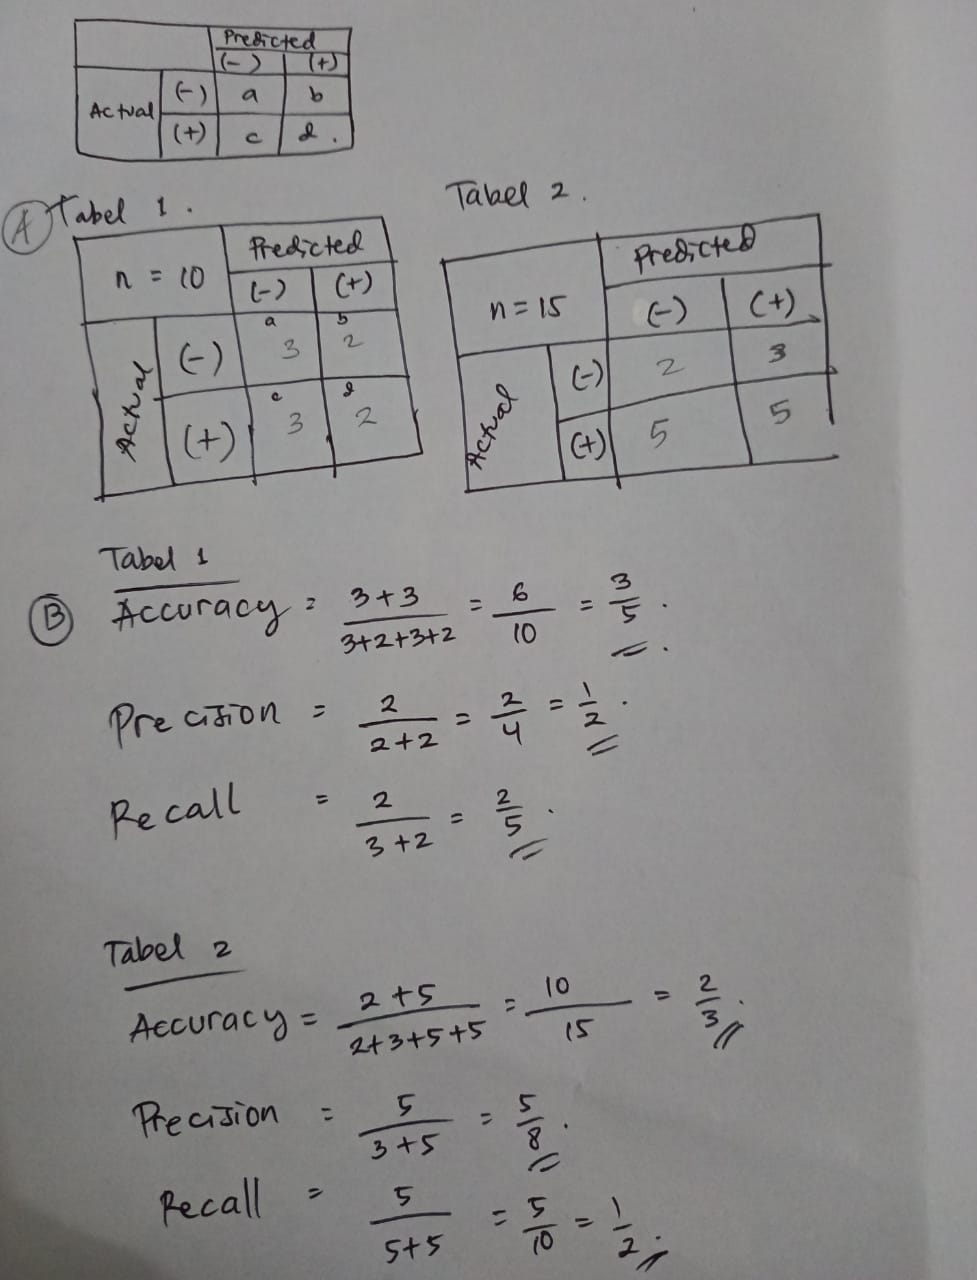 Predicted
(-) (+)
Actual (-) a b
(+) c d.
A Tabel 1.
Tabel 2.
n = 10 Predicted
(-) (+)
Actual (-) a 3 b 2
(+) c 3 d 2
n = 15 Predicted
(-) (+)
Actual (-) 2 3
(+) 5 5
Tabel 1
B Accuracy = 3+3 / 3+2+3+2 = 6/10 = 3/5.
Precision = 2 / 2+2 = 2/4 = 1/2.
Recall = 2 / 3+2 = 2/5.
Tabel 2
Accuracy = 2+5 / 2+3+5+5 = 10/15 = 2/3.
Precision = 5 / 3+5 = 5/8.
Recall = 5 / 5+5 = 5/10 = 1/2.